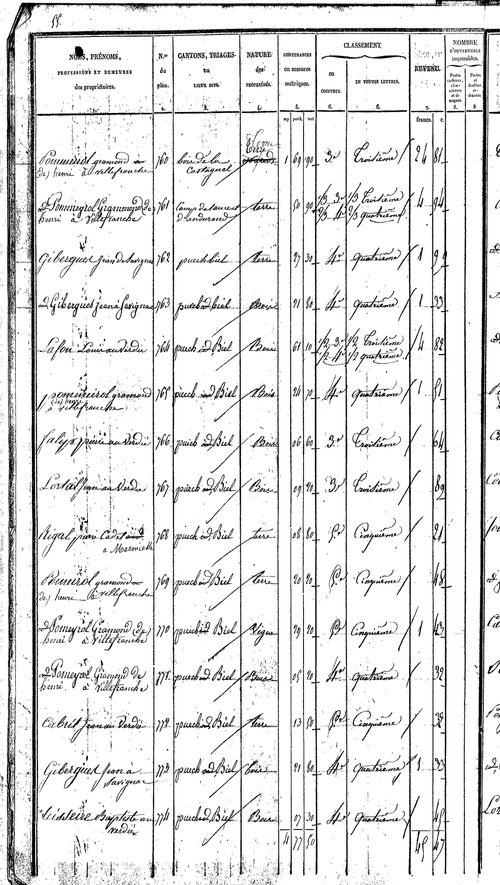 55.
NOMS, PRÉNOMS, PROFESSIONS ET DEMEURES des propriétaires.
N.os du plan.
CANTONS, TRIAGES ou LIEUX DITS.
NATURE des PROPRIÉTÉS.
CONTENANCES en mesures métriques.
CLASSEMENT
en CHIFFRES.
EN TOUTES LETTRES.
REVENU.
NOMBRE D'OUVERTURES imposables.
1. 2. 3. 4. 5. 6. 6. 7. 8. 8.
francs. c.
Pommeirol gramond de) henri à villefranche 760 bois de la Castagnal terre 1 69 90 3e Troisième 24 81
id Pommeyrol Grammond de henri à Villefranche 761 terre 50 90 1/3 3e 2/3 4e 1/3 Troisième 2/3 quatrième 4 94
Gibergues Jean à Savignac 762 puech biel terre 27 30 4e quatrième 1
id Gibergues Jean à Savignac 763 puech id biel Bois 21 80 4e quatrième 1 33
Lafon Louis au Verdié 764 puech id Biel Bois 61 10 1/2 3e 1/2 4e 1/2 troisième 1/2 quatrième 4 82
pommeirol gramond de) henri à villefranche 765 puech id Biel Bois 24 70 4e quatrième 1 51
pierre au Verdié 766 puech id Biel Bois 06 60 3e Troisième 64
Lortal Jean au Verdié 767 puech id Biel Bois 09 20 3e Troisième 89
Rigal pierre Cadet à Marmiesse 768 puech id Biel terre 08 80 5e Cinquième 21
Pommeirol gramond de) henri à Villefranche 769 puech id Biel terre 20 20 5e Cinquième 48
id Pomeyrol Gramond (de) henri à Villefranche 770 puech id Biel Vignes 29 20 5e Cinquième 1 43
id Pomeyrol Gramond de henri à Villefranche 771 puech id Biel Bois 05 20 4e quatrième 32
Cabrit Jean au Verdié 772 puech id Biel terre 13 50 5e Cinquième 32
Gibergues Jean à Savignac 773 puech id Biel bois 21 80 4e quatrième 1 33
Teisseire Baptiste au Verdié 774 puech id Biel Bois 07 30 4e quatrième 45
4 77 50 45 47